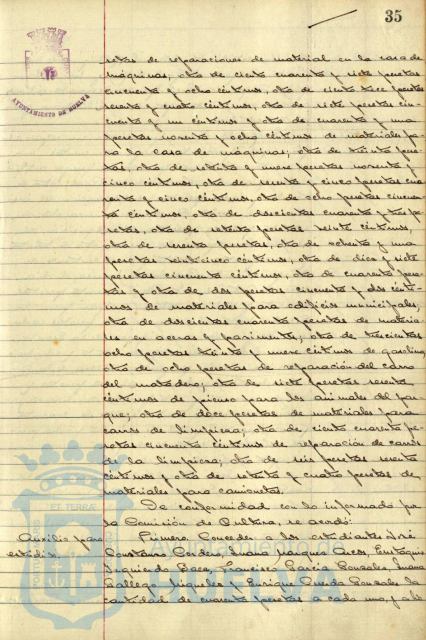 35
AYUNTAMIENTO DE HUELVA
setas de reparaciones de material en la casa de
máquinas, otra de ciento cuarenta y siete pesetas
cincuenta y ocho céntimos, otra de ciento trece pesetas
sesenta y cuatro céntimos, otra de siete pesetas cin-
cuenta y un céntimos y otra de cuarenta y una
pesetas noventa y ocho céntimos de materiales pa-
ra la casa de máquinas; otra de treinta pese-
tas, otra de veinte y nueve pesetas noventa y
cinco céntimos, otra de sesenta y cinco pesetas cua-
renta y cinco céntimos, otra de ocho pesetas cincuen-
ta céntimos, otra de doscientas cuarenta y tres pe-
setas, otra de veinte pesetas veinte céntimos,
otra de sesenta pesetas, otra de ochenta y una
pesetas veinticinco céntimos, otra de diez y siete
pesetas cincuenta céntimos, otra de cuarenta pese-
tas y otra de dos pesetas cincuenta y dos cénti-
mos de materiales para edificios municipales;
otra de doscientas cuarenta pesetas de materia-
les en aceras y pavimentos; otra de trescientas
ocho pesetas treinta y nueve céntimos de gasolina,
otra de ocho pesetas de reparación del carro
del matadero; otra de siete pesetas sesenta
céntimos de pienso para los animales del par-
que; otra de doce pesetas de materiales para
carros de limpieza; otra de ciento cuarenta pe-
setas cincuenta céntimos de reparación de carros
de la limpieza; otra de seis pesetas sesenta
céntimos y otra de veinte y cuatro pesetas de
materiales para camionetas.
De conformidad con lo informado por
la Comisión de Cultura, se acordó:
Auxilio para
estudios
Primero. Conceder a los estudiantes José
Cordero, Juana Márquez
Izquierdo Baez, Francisco García González, Juana
Gallego y Enrique González la
cantidad de cuarenta pesetas a cada uno, y a